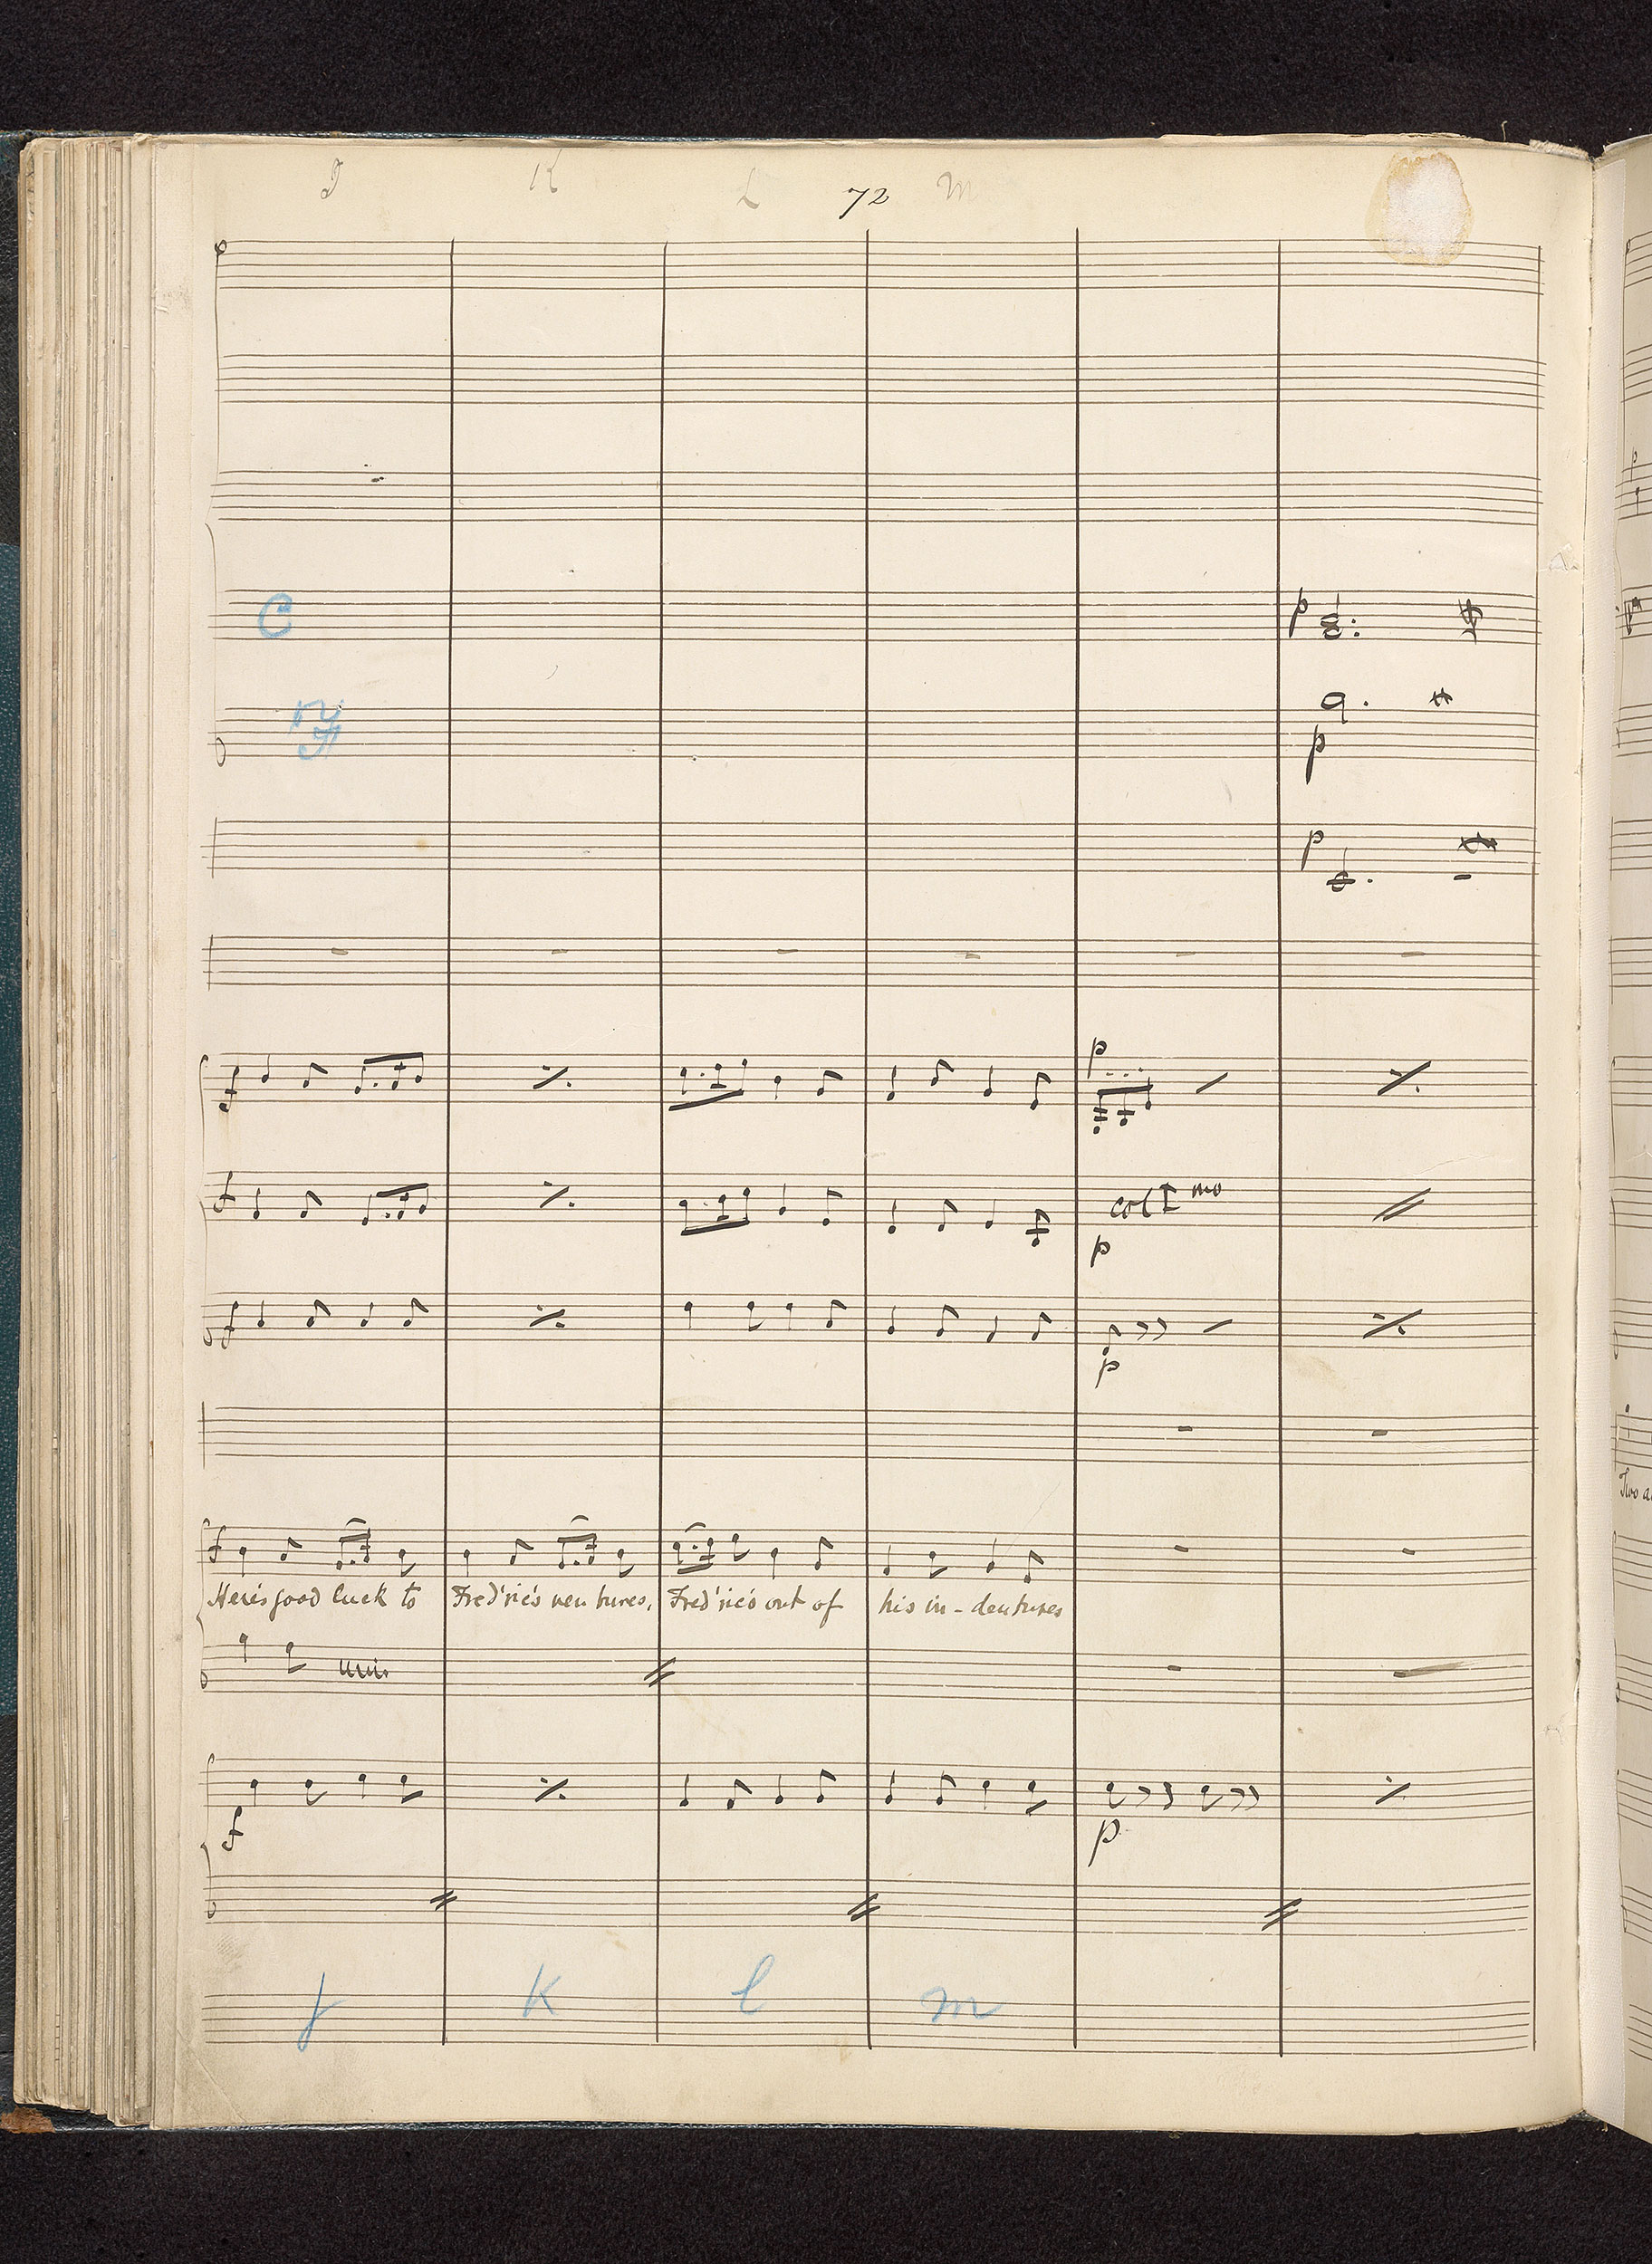 J K L 72 M
C
p
p
p
p
f
f col I mo
p
f
p
f
Here's good luck to Fred'ric's ventures, Fred'ric's out of his in - dentures
unis
f
p
j k l m
Two a